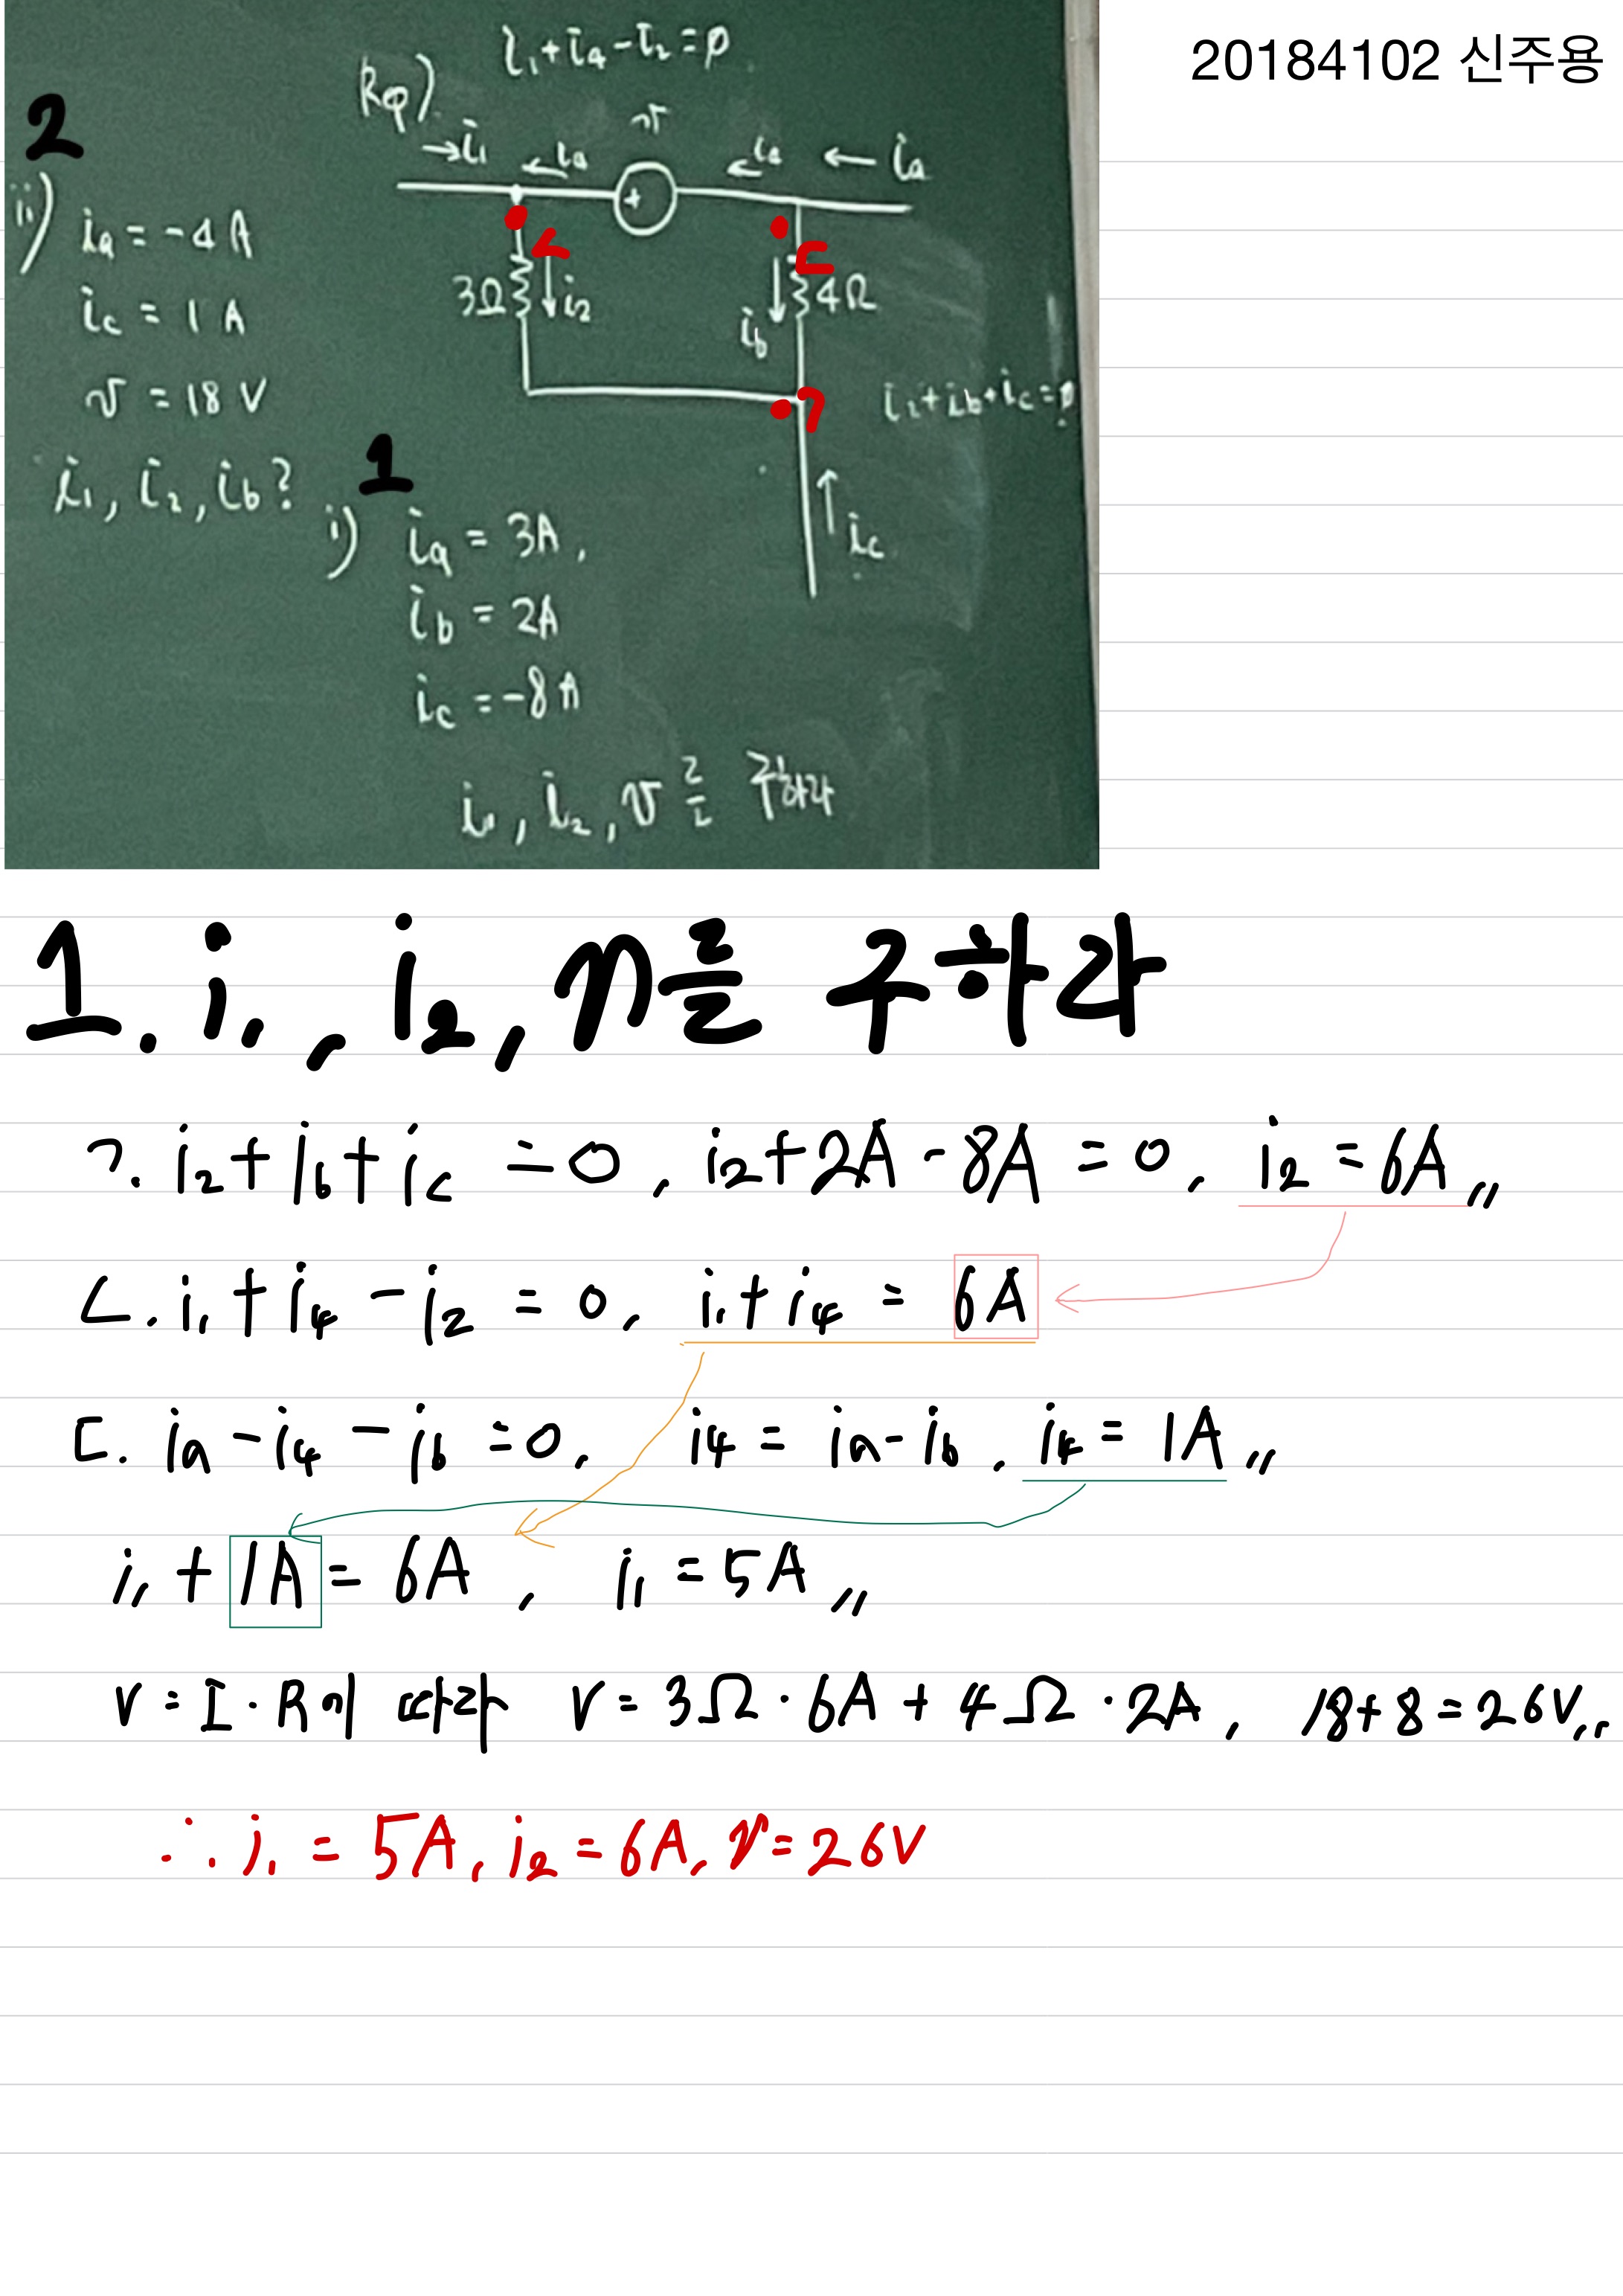 20184102 신주용
i₁+i₄-i₂=0
Rep)
2
v
→i₁
←i₄
←i₄
←ia
ii)
ia = -4 A
ic = 1 A
v = 18 V
i₁, i₂, ib?
+
ㄴ
ㄷ
3Ω
↓i₂
ib
4Ω
ㄱ
i₂+ib+ic=0
↑ic
1
i)
ia = 3A,
ib = 2A
ic = -8A
i₁, i₂, v를 구하라
1. i₁, i₂, v를 구하라
ㄱ. i₂+ib+ic =0, i₂+2A-8A =0, i₂ =6A,,
ㄴ. i₁+i₄-i₂ = 0, i₁+i₄ = 6A
ㄷ. ia-i₄-ib =0, i₄ = ia-ib, i₄ = 1A,,
i₁+1A = 6A, i₁ = 5A,,
V=I·R에 따라 V=3Ω·6A+4Ω·2A, 18+8=26V,,
∴ i₁ = 5A, i₂ = 6A, v=26V